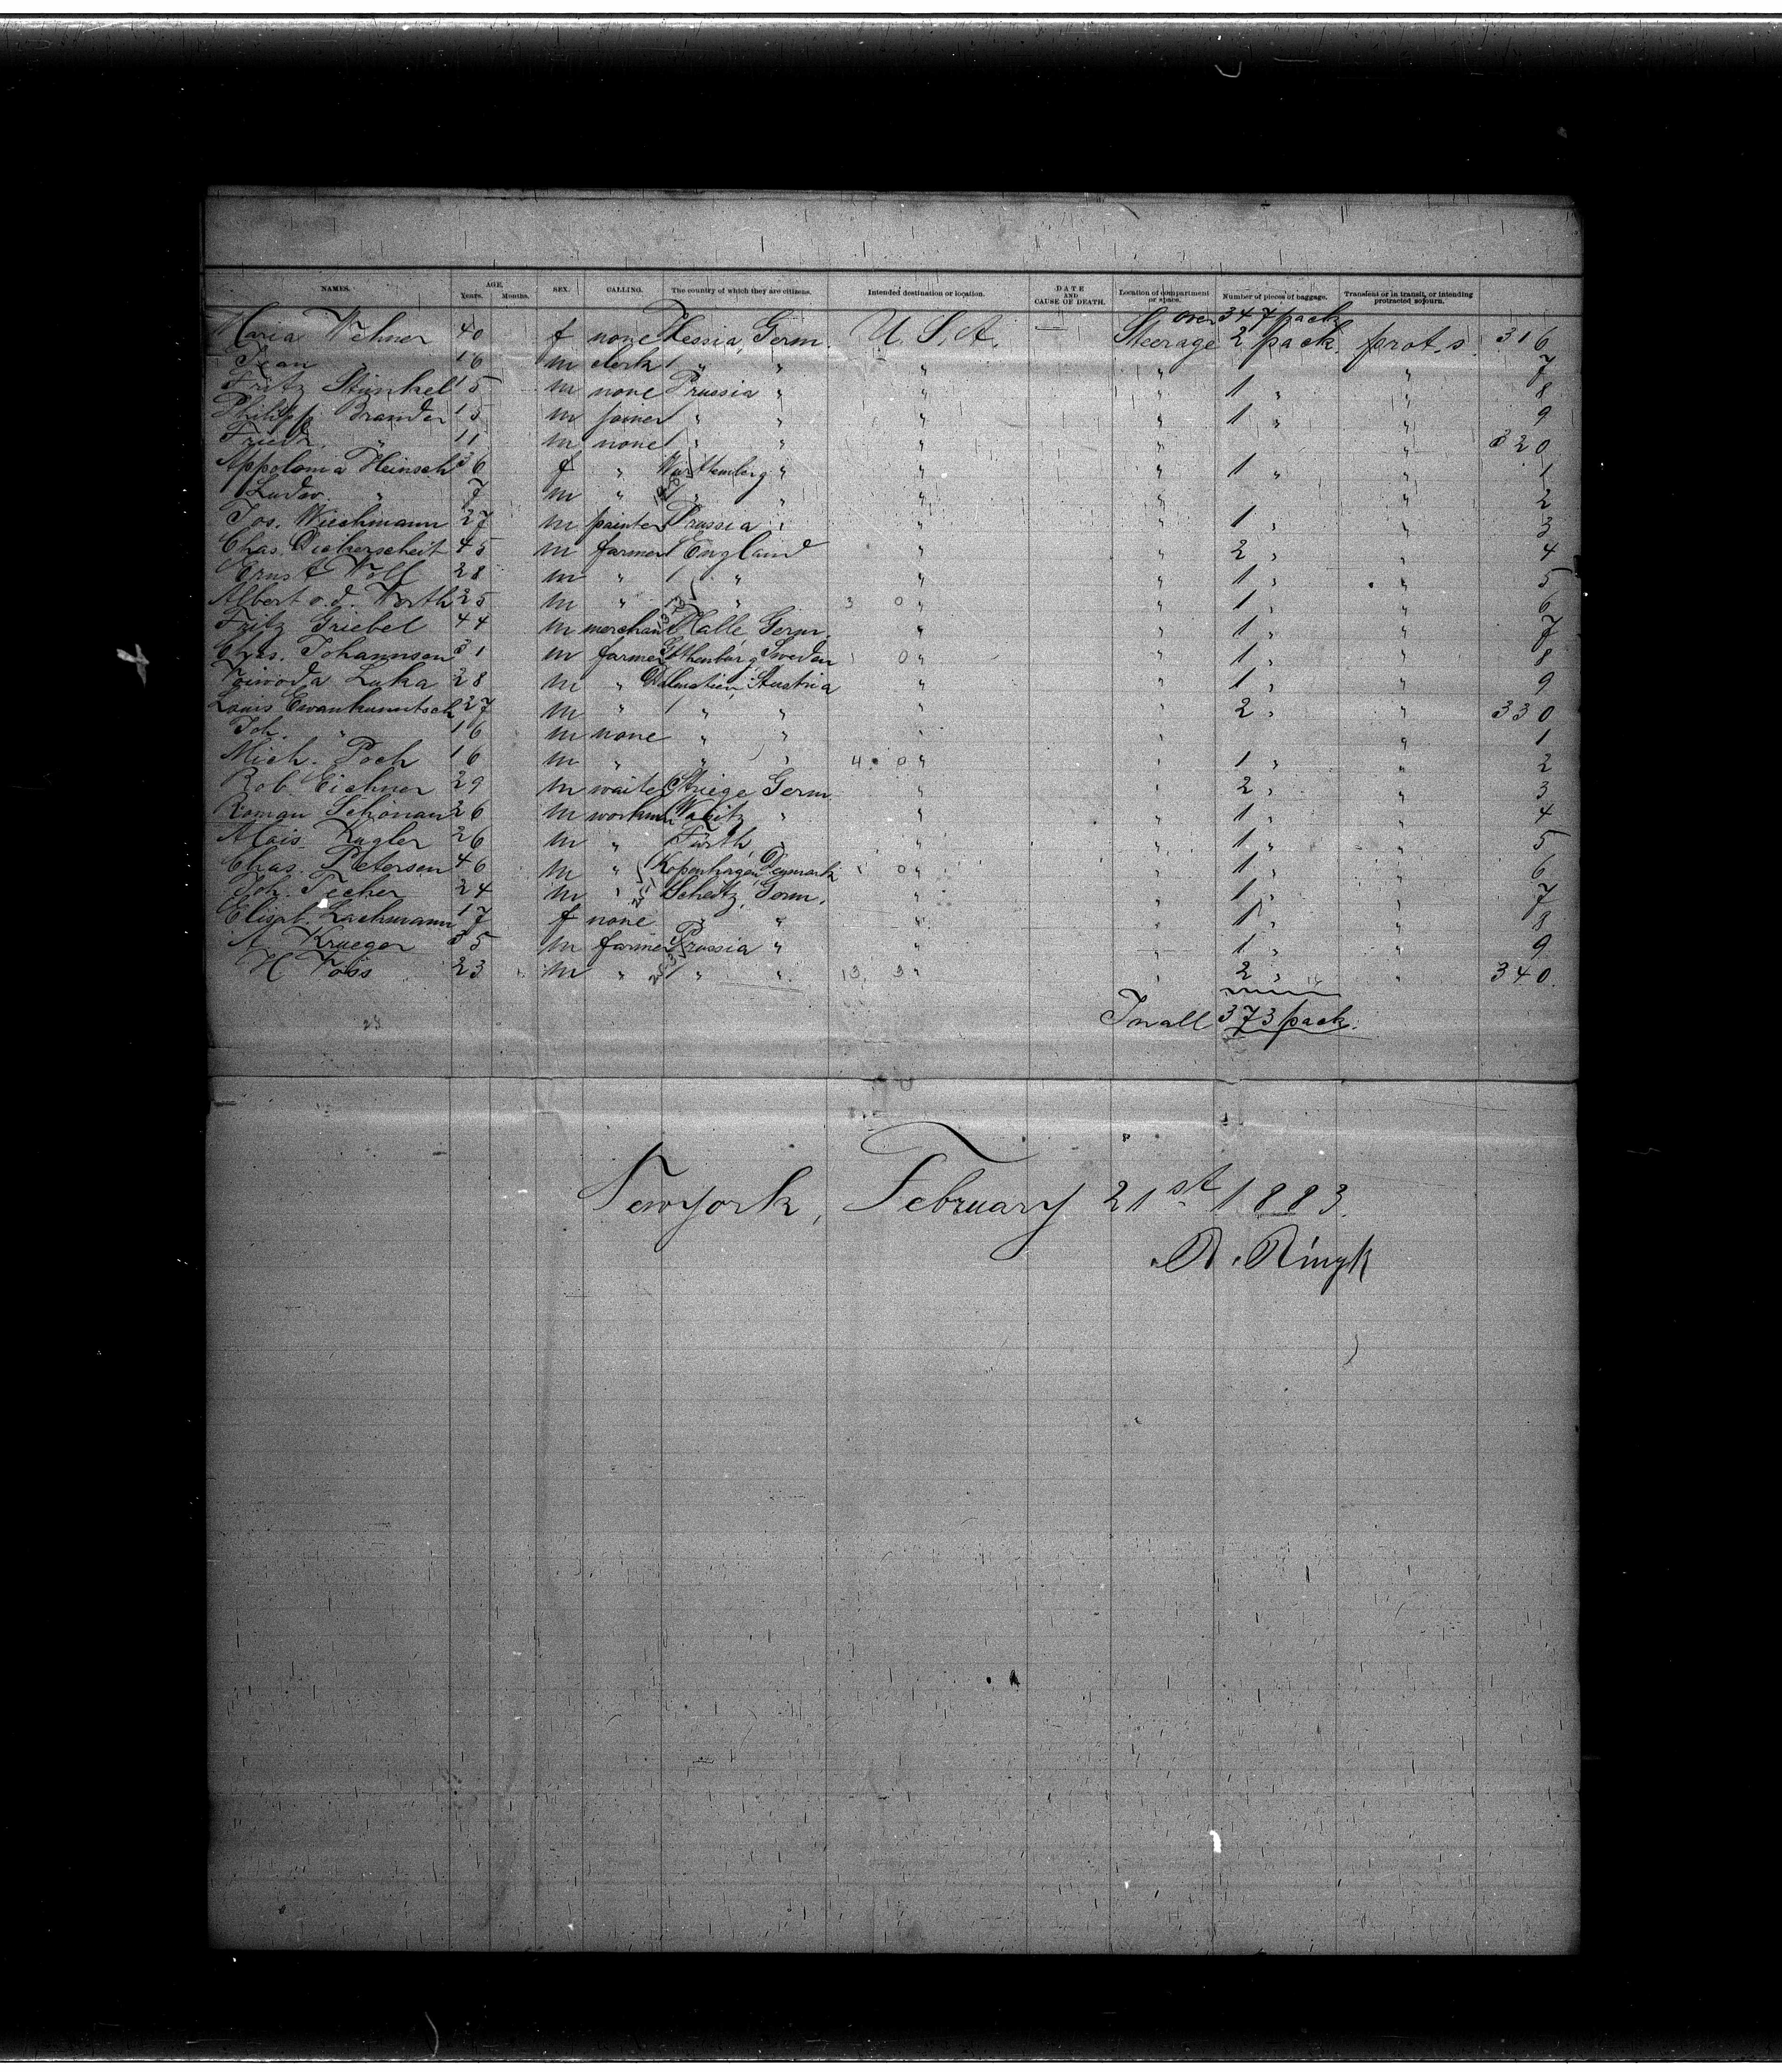 NAMES. AGE. Years. Months. SEX. CALLING. The country of which they are citizens. Intended destination or location. DATE AND CAUSE OF DEATH. Location of compartment or space. Number of pieces of baggage. Transient or in transit, or intending protracted sojourn.
over 347 pack
Maria Wehner 40 f none Hessia, Germ. U. S. A. Steerage 2 pack. prot. s. 316
Jean " 16 m clerk " " " " " 7
Fritz Stünkel 15 m none Prussia " " " 1 " " 8
Philipp Brander 15 m " " " " 1 " " 9
Friedr. " 11 m none " " " " " 320
Appolonia Heinsch 36 f " Württemberg " " " 1 " " 1
Ludw. " 7 m " " " " " " 2
Jos. Wiechmann 27 m painter Prussia " " " 1 " " 3
Chas. Dickerscheit 45 m farmer England " " 2 " " 4
Ernst Wolf 28 m " " " " 1 " " 5
Albert v. d. Worth 25 m " " 3 0 " " 1 " " 6
Fritz Griebel 44 m merchant Halle Germ. " " 1 " " 7
Chas. Johannson 31 m farmer Gothenburg Sweden 0 " " 1 " " 8
Voiwoda Luka 28 m " Dalmatien, Austria " " 1 " " 9
Louis 27 m " " " " " 2 " " 330
Joh. " 16 m none " " " " " 1
Mich. Poch 16 m " " " 4 0 " " 1 " " 2
Rob. Eichner 29 m waiter Striege Germ. " " 2 " " 3
Roman Schönau 26 m workman " " " 1 " " 4
Alois Kugler 26 m " Fürth " " " 1 " " 5
Chas. Petersen 46 m " Kopenhagen, Denmark 0 " " 1 " " 6
Joh. Techer 24 m " Scheitz, Germ. " " 1 " " 7
Elisabt. Lachmann 17 f none " " " " 1 " " 8
A. Krueger 35 m farmer Prussia " " " 1 " " 9
H. Voss 23 m " " " 13 3 " " 2 " " 340
In all 373 pack.
Newyork, February 21st 1883.
R. Ringk